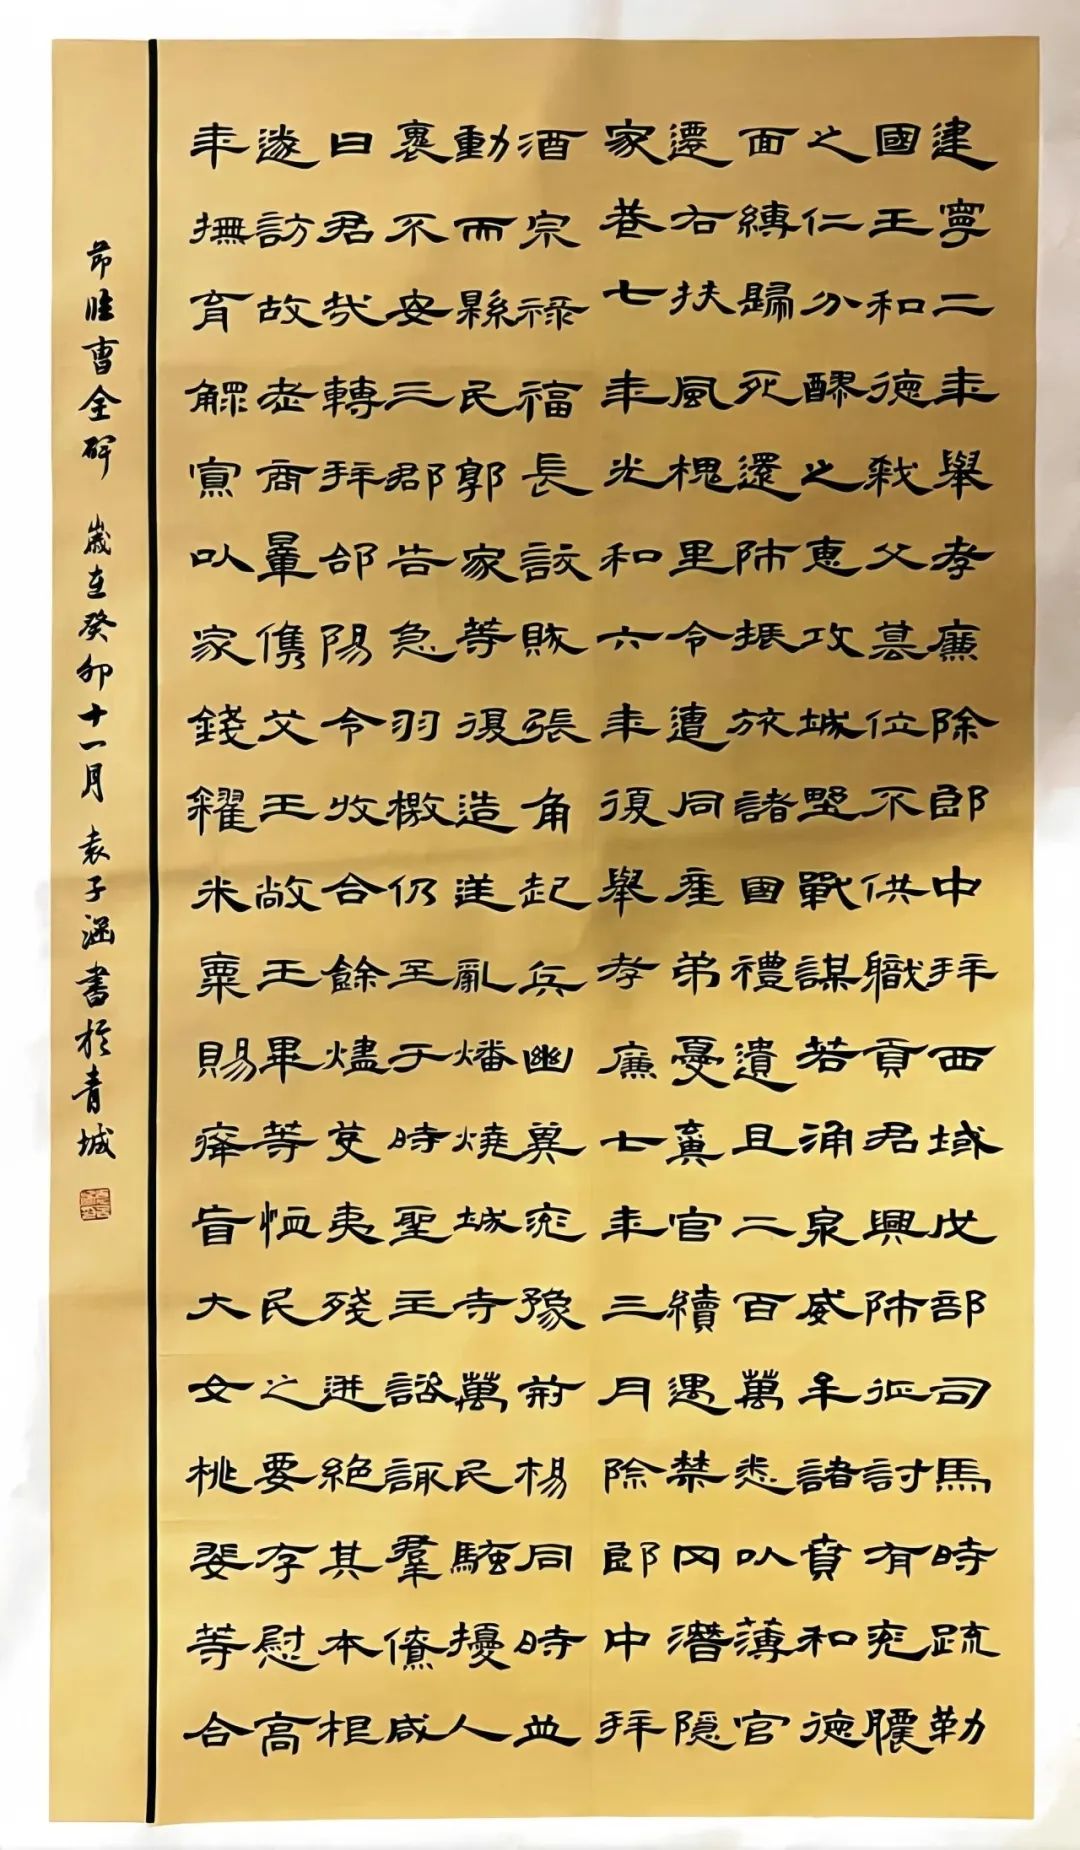 建寧二年舉孝廉除郎中拜西域戊部司馬時疏勒
國王和德弒父篡位不供職貢君興師征討有兖膿
之仁分醪之惠攻城野戰謀若涌泉威牟諸賁和德
面縛歸死還師振旅諸國禮遺且二百萬悉以薄官
遷右扶風槐里令遭同產弟憂棄官續遇禁网潛隱
家巷七年光和六年復舉孝廉七年三月除郎中拜
酒宗祿福長訞賊張角起兵幽冀兖豫荊楊同時並
動而縣民郭家等復造逆亂燔燒城寺萬民騷擾人
裏不安三郡告急羽檄仍至于時聖主諮諏羣僚咸
曰君哉轉拜郃陽令收合餘燼芟夷殘迸絕其本根
遂訪故老商暈儁艾王敞王畢等恤民之要存慰高
年撫育鰥寡以家錢糴米粟賜癃盲大女桃婓等合
節臨曹全碑 歲在癸卯十一月袁子涵書於青城